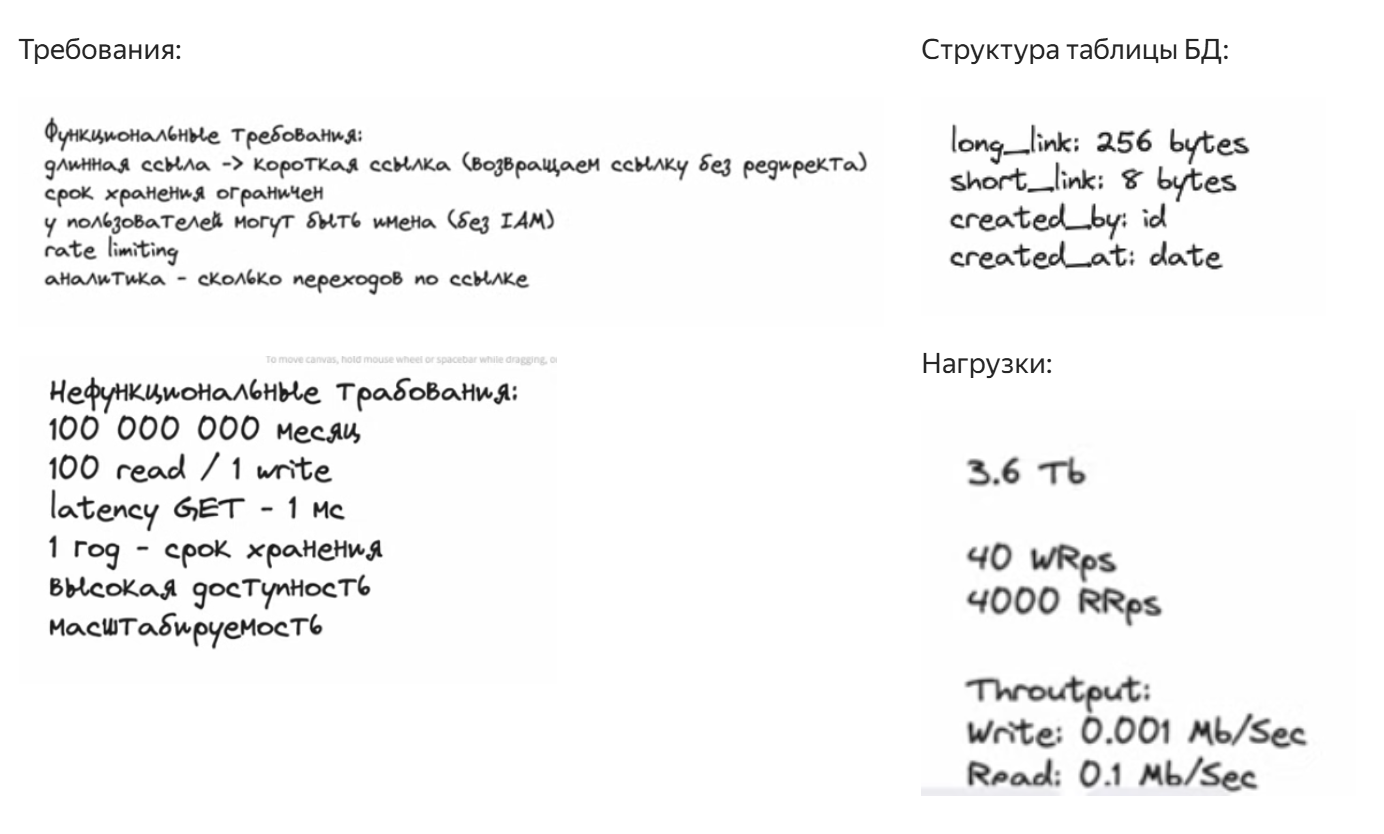 Требования:
Функциональные требования:
длинная ссыла -> короткая ссылка (возвращаем ссылку без редиректа)
срок хранения ограничен
у пользователей могут быть имена (без IAM)
rate limiting
аналитика - сколько переходов по ссылке
To move canvas, hold mouse wheel or spacebar while dragging,
Нефункциональные трабования:
100 000 000 месяц
100 read / 1 write
latency GET - 1 мс
1 год - срок хранения
высокая доступность
масштабируемость
Структура таблицы БД:
long_link: 256 bytes
short_link: 8 bytes
created_by: id
created_at: date
Нагрузки:
3.6 Tb
40 WRps
4000 RRps
Throutput:
Write: 0.001 Mb/Sec
Read: 0.1 Mb/Sec